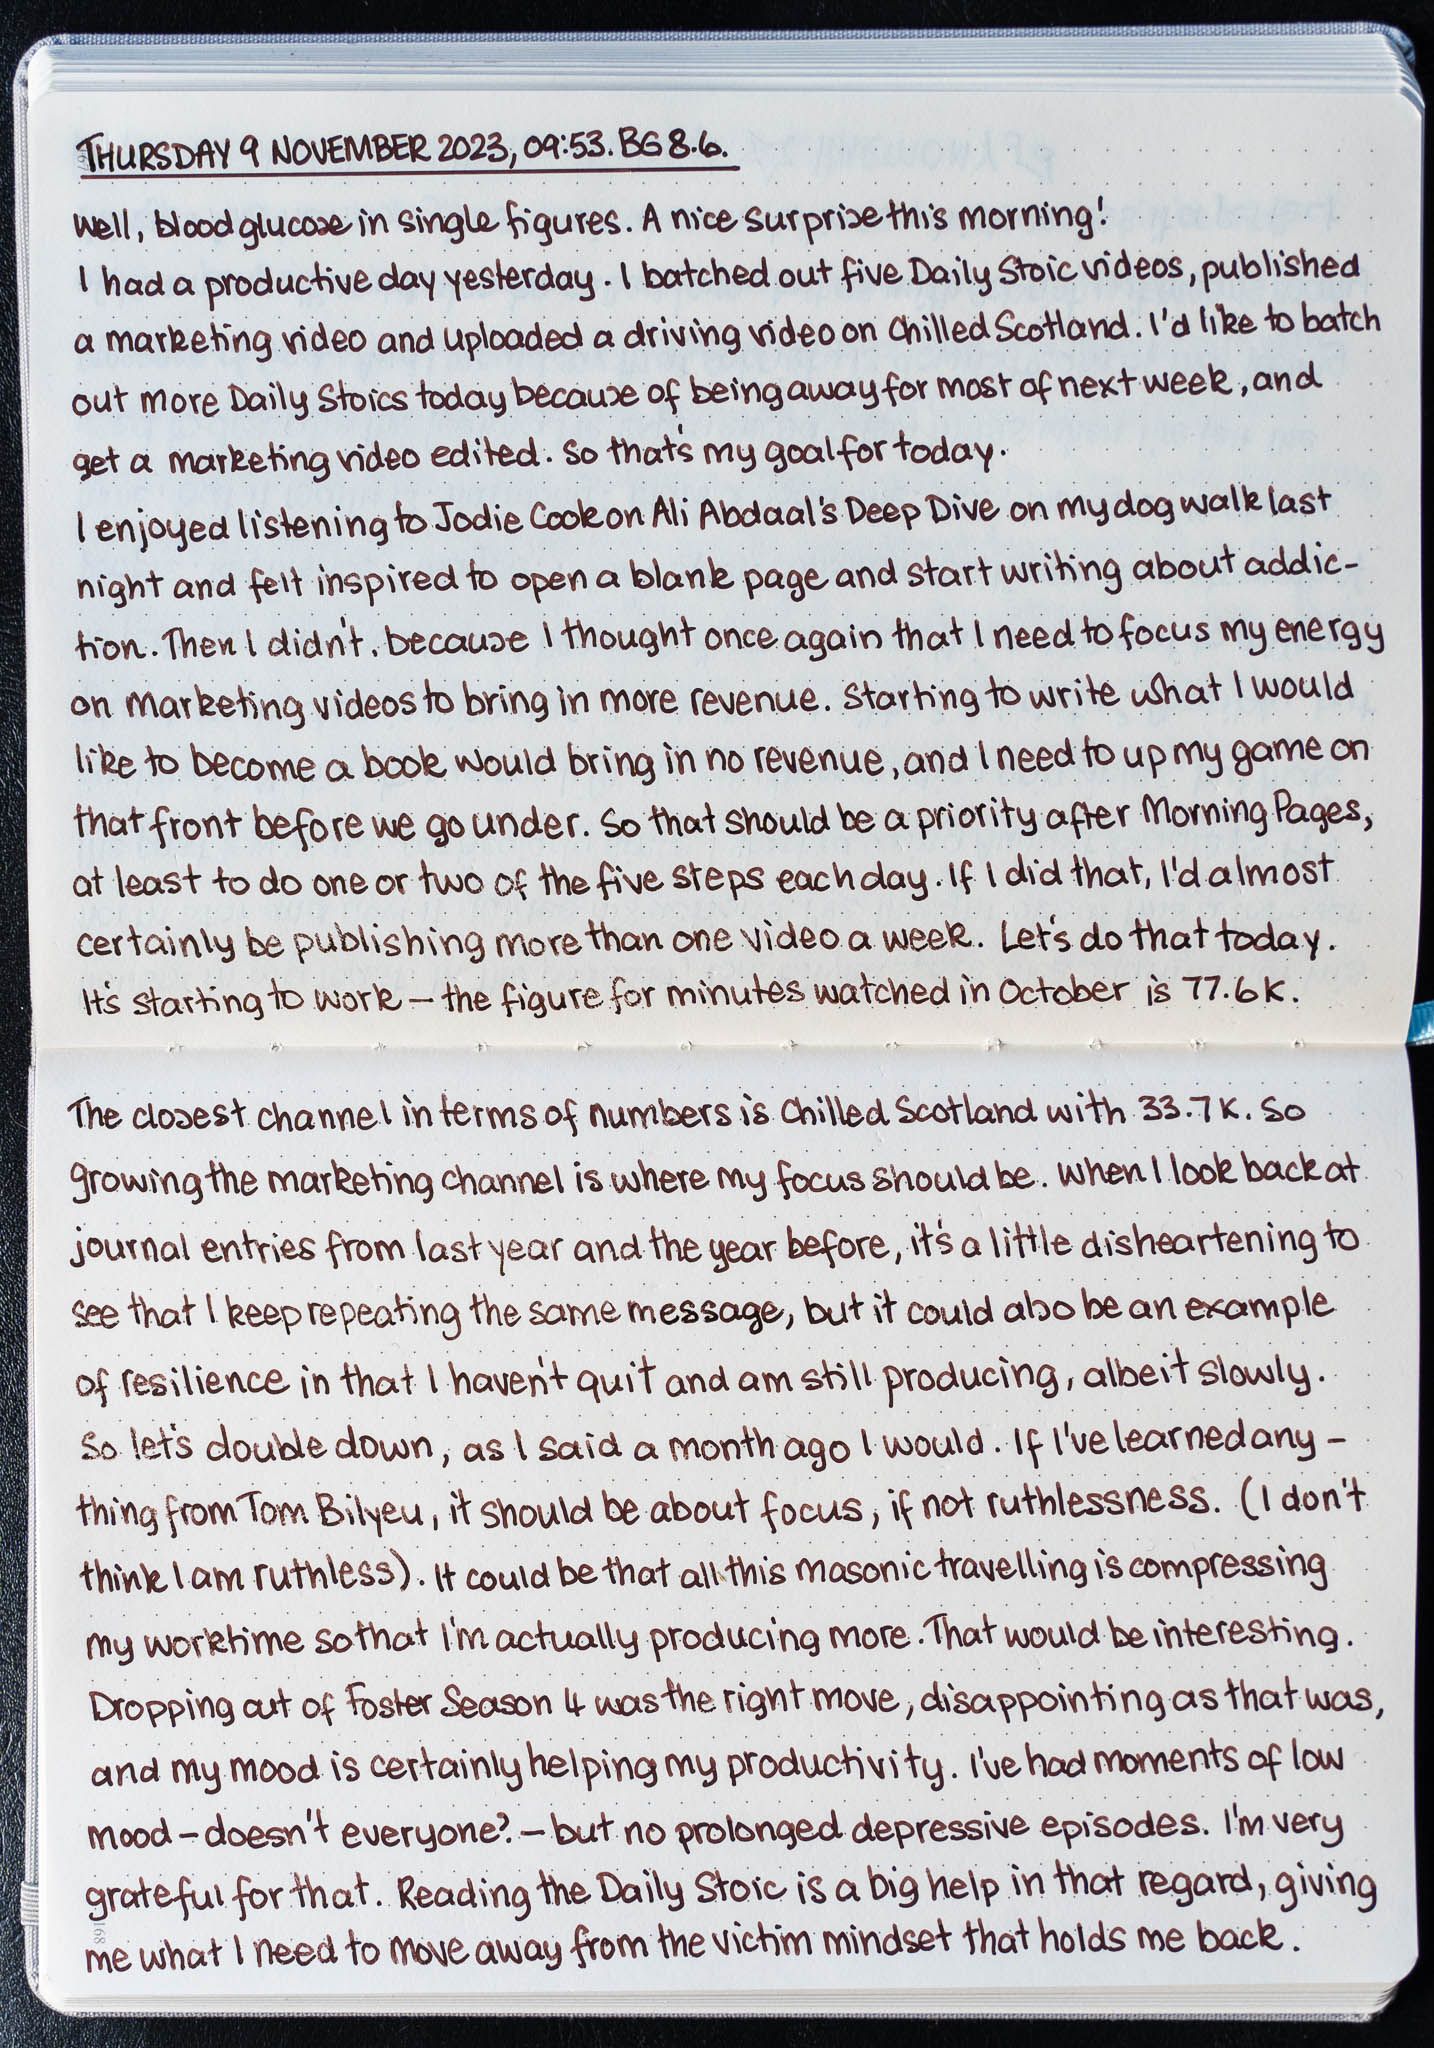 THURSDAY 9 NOVEMBER 2023, 09:53. BG 8.6.
Well, blood glucose in single figures. A nice surprise this morning!
I had a productive day yesterday. I batched out five Daily Stoic videos, published
a marketing video and uploaded a driving video on Chilled Scotland. I'd like to batch
out more Daily Stoics today because of being away for most of next week, and
get a marketing video edited. So that's my goal for today.
I enjoyed listening to Jodie Cook on Ali Abdaal's Deep Dive on my dog walk last
night and felt inspired to open a blank page and start writing about addic-
tion. Then I didn't, because I thought once again that I need to focus my energy
on marketing videos to bring in more revenue. Starting to write what I would
like to become a book would bring in no revenue, and I need to up my game on
that front before we go under. So that should be a priority after Morning Pages,
at least to do one or two of the five steps each day. If I did that, I'd almost
certainly be publishing more than one video a week. Let's do that today.
It's starting to work – the figure for minutes watched in October is 77.6K.
The closest channel in terms of numbers is Chilled Scotland with 33.7K. So
growing the marketing channel is where my focus should be. When I look back at
journal entries from last year and the year before, it's a little disheartening to
see that I keep repeating the same message, but it could also be an example
of resilience in that I haven't quit and am still producing, albeit slowly.
So let's double down, as I said a month ago I would. If I've learned any-
thing from Tom Bilyeu, it should be about focus, if not ruthlessness. (I don't
think I am ruthless). It could be that all this masonic travelling is compressing
my worktime so that I'm actually producing more. That would be interesting.
Dropping out of Foster Season 4 was the right move, disappointing as that was,
and my mood is certainly helping my productivity. I've had moments of low
mood – doesn't everyone? – but no prolonged depressive episodes. I'm very
grateful for that. Reading the Daily Stoic is a big help in that regard, giving
168
me what I need to move away from the victim mindset that holds me back.